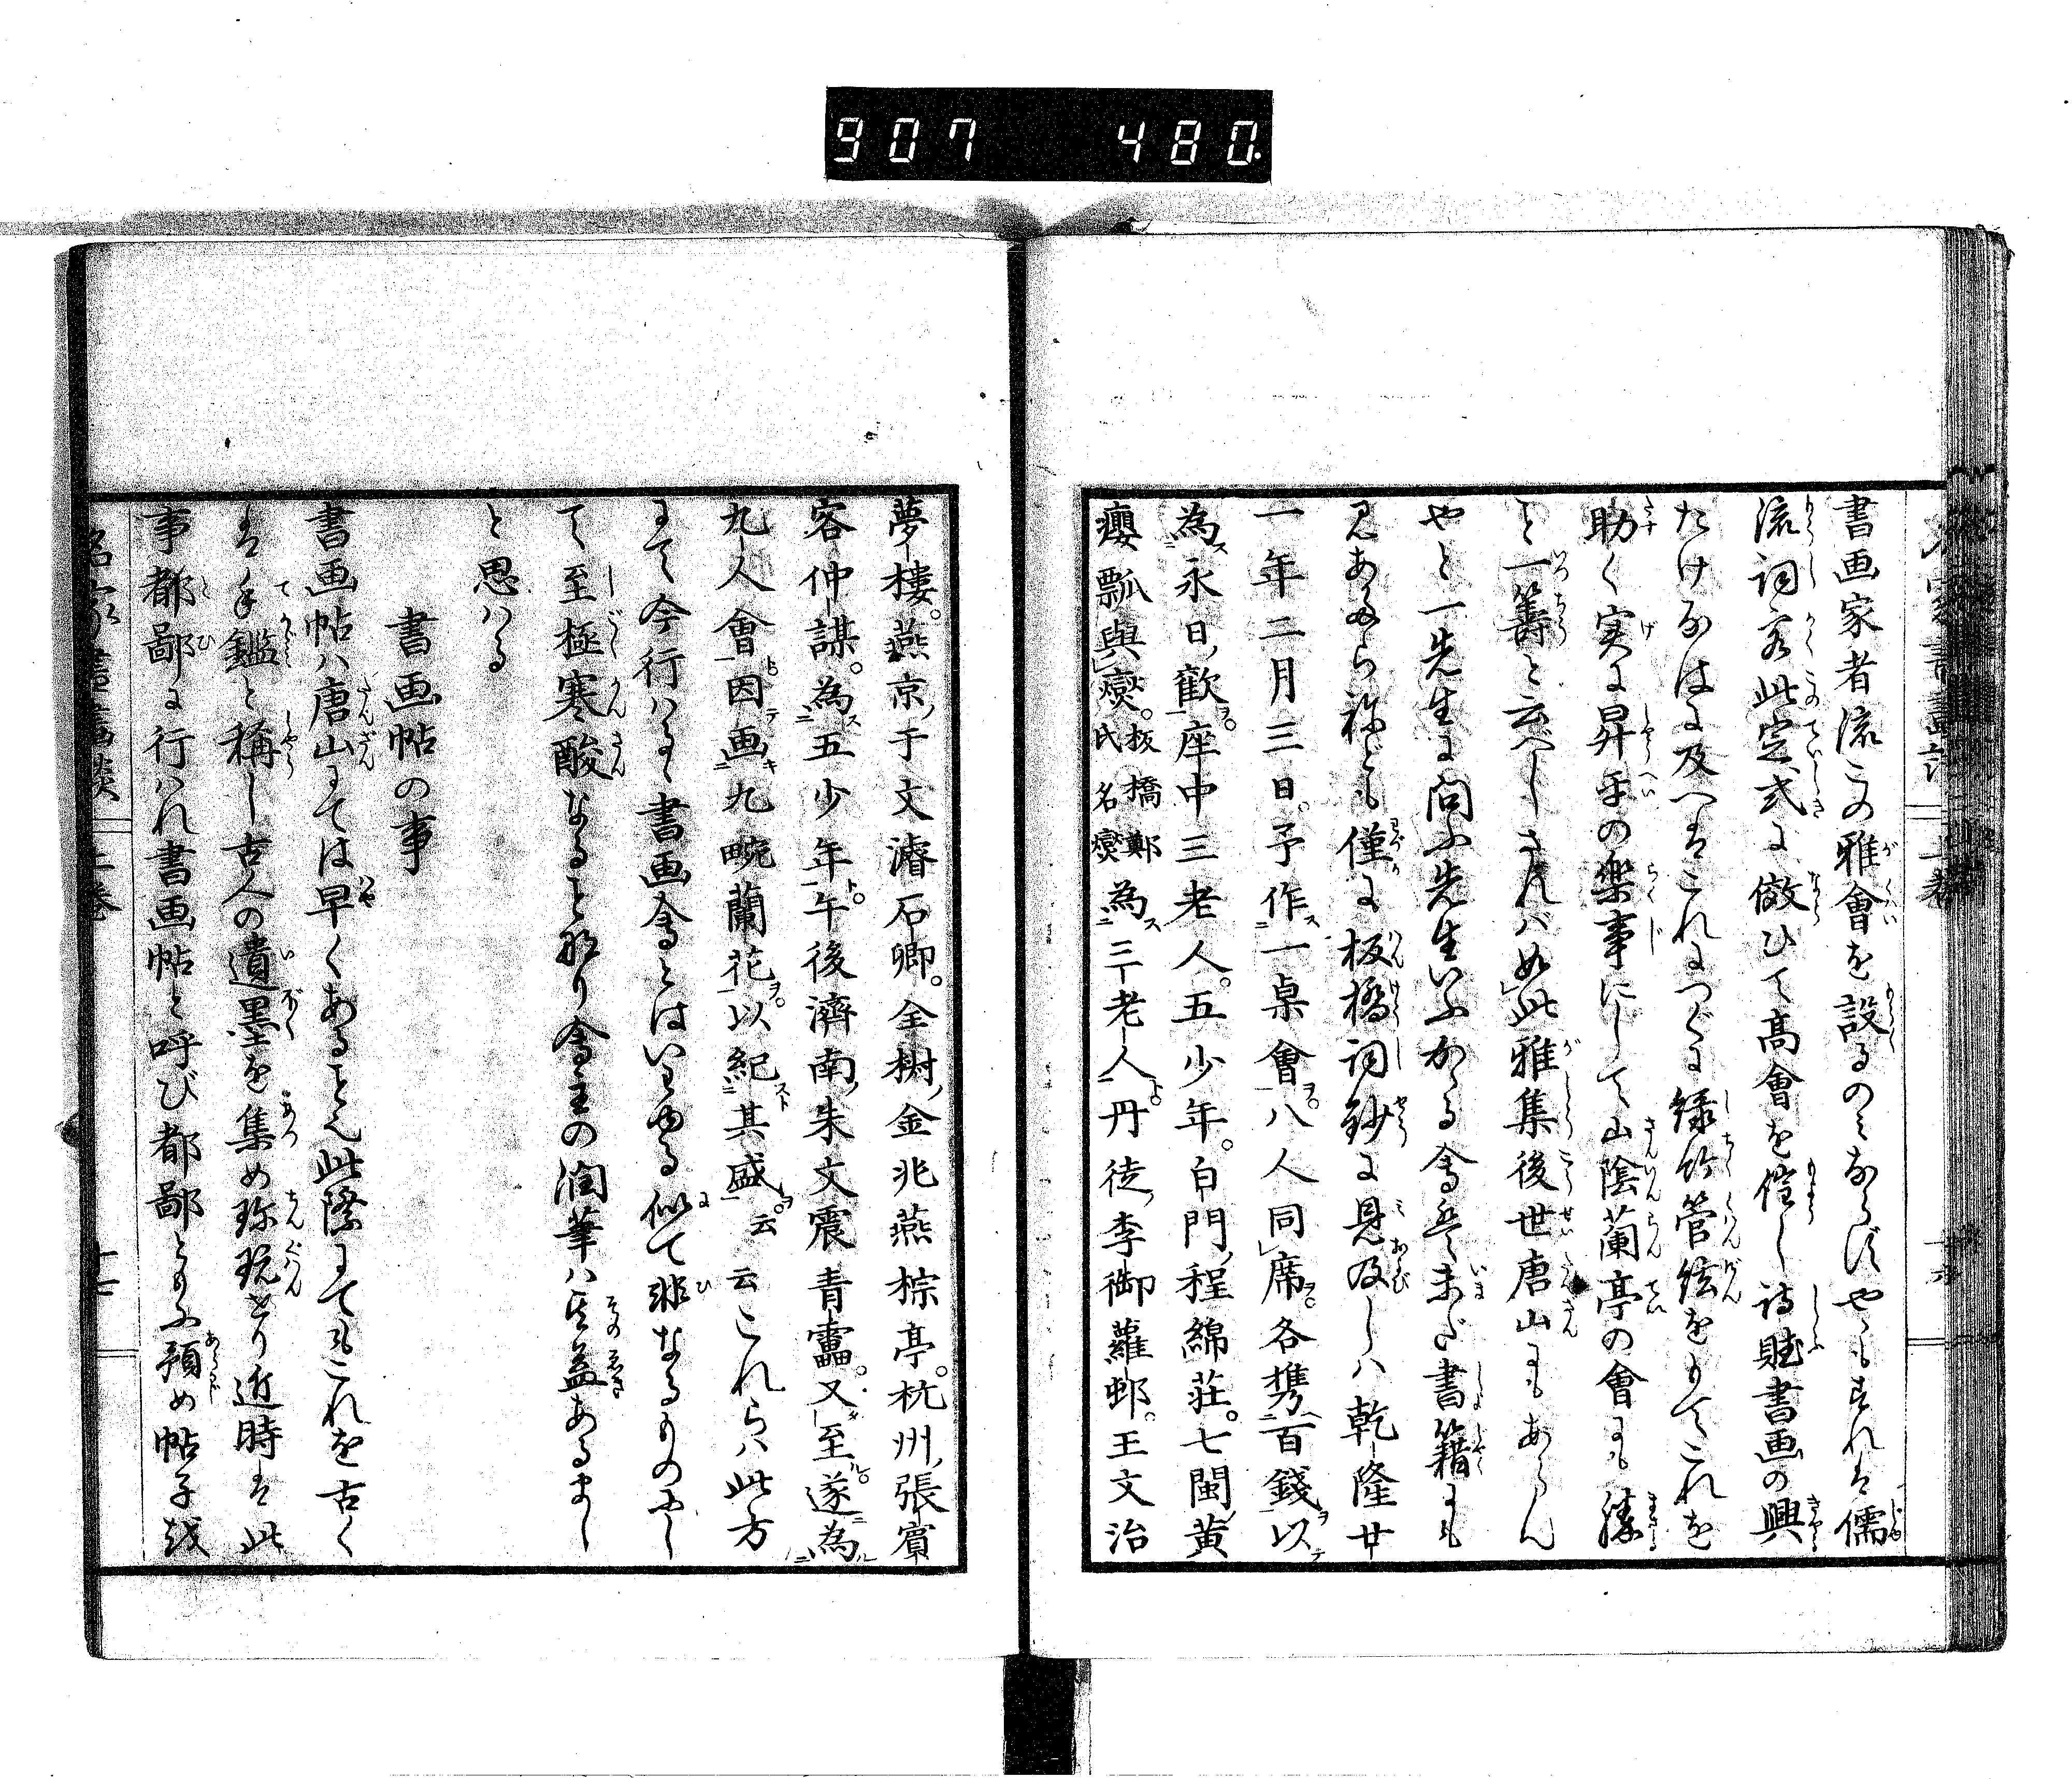 907 480
書画家者流この雅會を設るのみならずやゝもすれは儒
流詞客此定式に倣ひて高會を催し詩賦書画の興
たけなはに及へはこれにつぐに緑竹管絃をもてこれを
助く実に昇平の楽事にして山陰蘭亭の會にも勝
と一籌と云べしされバ如此雅集後世唐山にもあらん
やと一先生に問ふ先生いふかゝる会集未だ書籍にも
見あたら祢ども僅に板橋詞鈔に見及しハ乾隆廿
一年二月三日予作一桌會八人同席各携百錢以
為永日歡座中三老人五少年白門程綿荘七閩黄
癭瓢與爕板橋鄭氏名爕為三老人丹徒李御蘿邨王文治
夢樓燕京于文濬石卿全樹金兆燕棕亭杭州張賓
容仲謀為五少年午後濟南朱文震青靁又至遂為
九人會因画九畹蘭花以紀其盛云云これらハ此方
にて今行ハるゝ書画會とはいはゆる似て非なるものにし
て至極寒酸なること那り會主の潤筆ハ其益あるまし
と思ハる
書画帖の事
書画帖ハ唐山にては早くあること也此際にてもこれを古く
は手鑑と稱し古人の遺墨を集め珎玩とり近時は此
事都鄙に行ハれ書画帖と呼び都鄙ともに預め帖子越
名家書畫談 上巻 十七